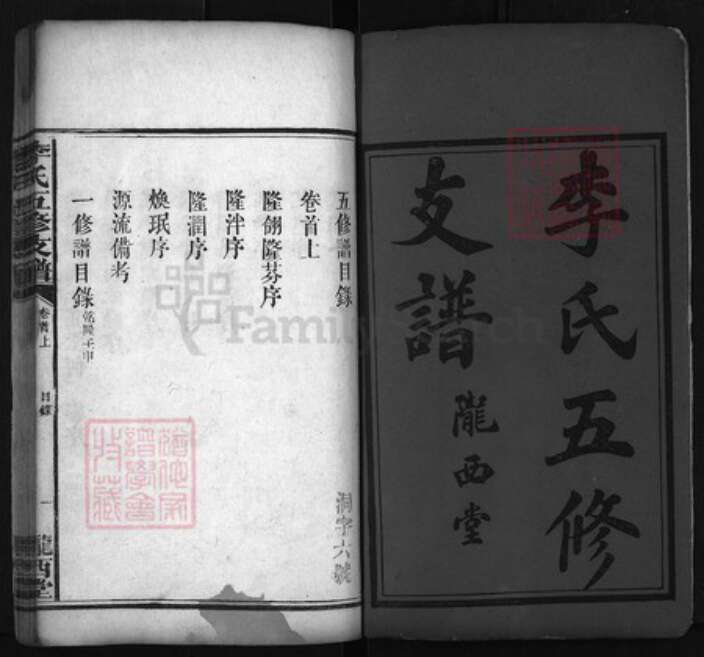 李氏五修
支譜
隴西堂
五修譜目錄
卷首上
隆翎隆芬序
隆泮序
隆潤序
煥珉序
源流備考
一修譜目錄乾隆壬申
洞字六號
李氏五修支譜
卷首上
目錄
一
隴西堂
FamilySearch